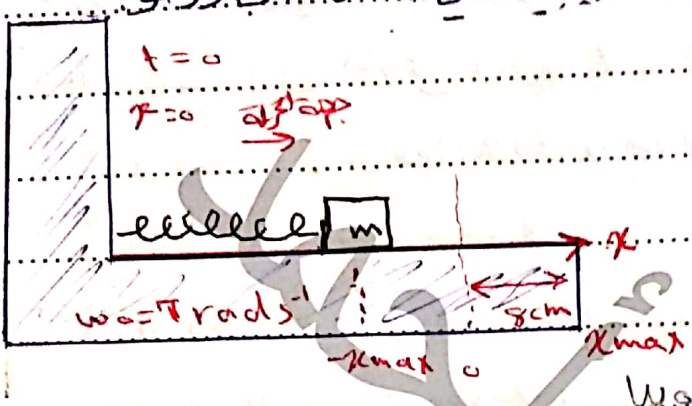 t = 0
x = 0
m
x
ω₀ = π rad s⁻¹
8cm
-xmax 0 xmax